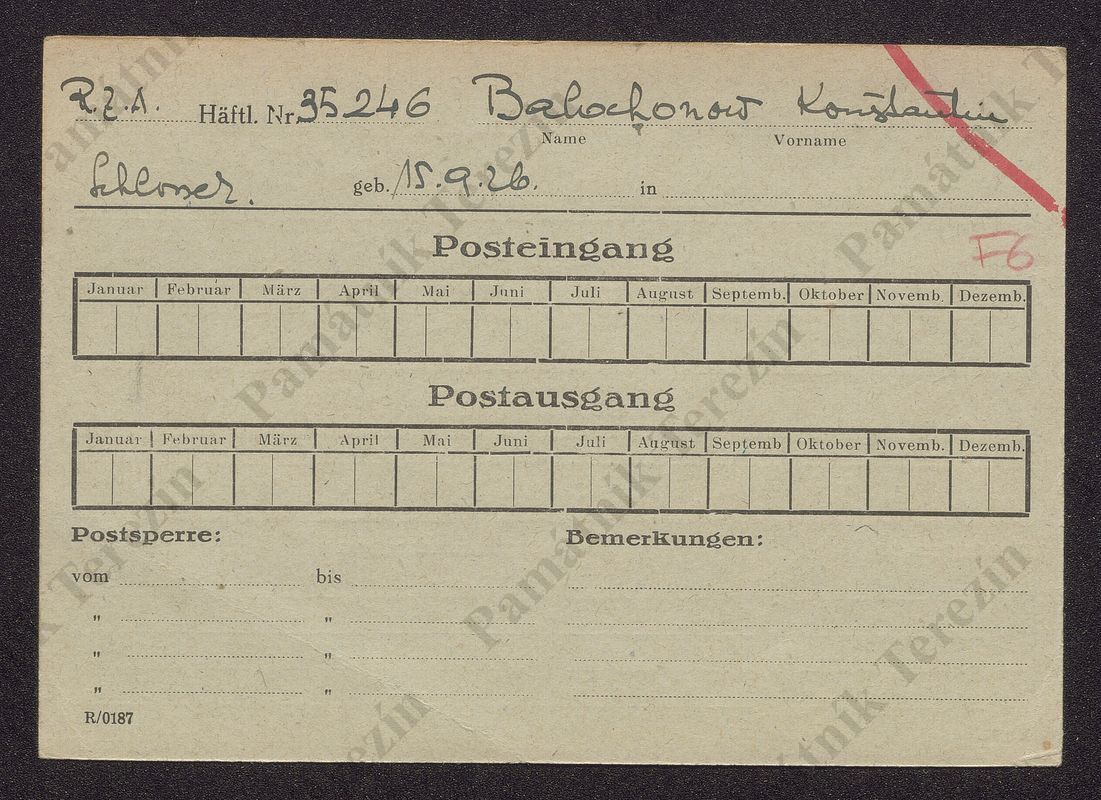 R.Z.A. Häftl. Nr. 35246 Balochonow Konstantin
Name Vorname
Schlosser. geb. 15.9.26. in
Posteingang
F6
Januar Februar März April Mai Juni Juli August Septemb. Oktober Novemb. Dezemb.
Postausgang
Januar Februar März April Mai Juni Juli August Septemb Oktober Novemb. Dezemb.
Postsperre: Bemerkungen:
vom bis
" "
" "
" "
R/0187
Památník Terezín